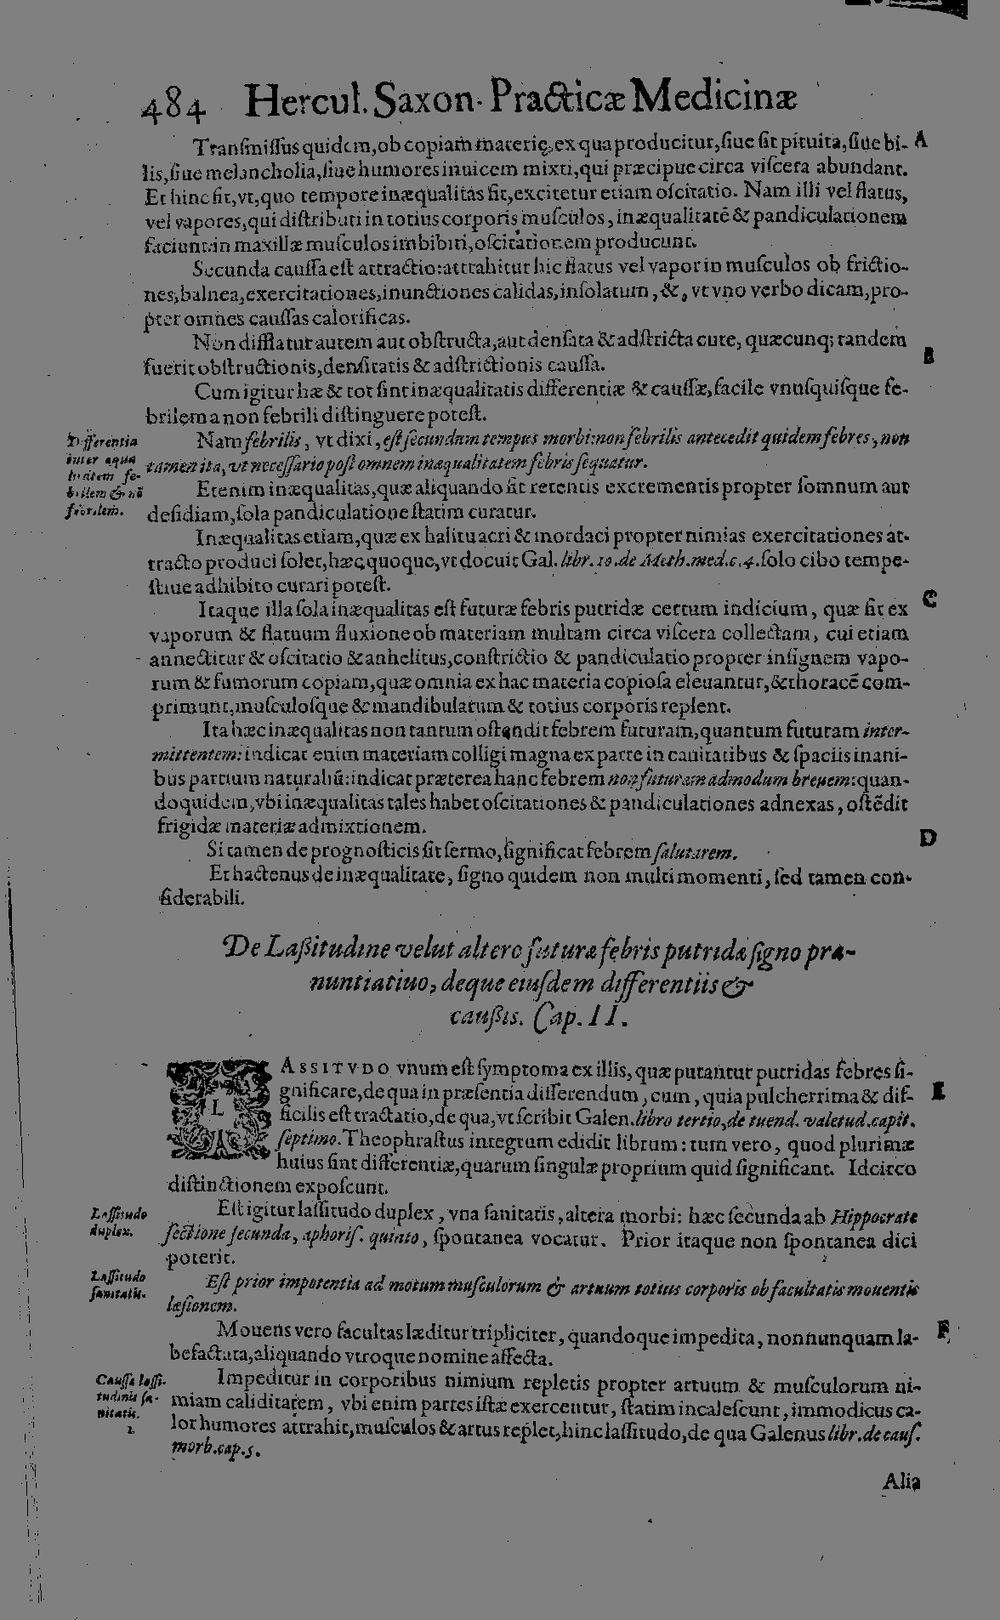 484 Hercul. Saxon. Practicæ Medicinæ
Transmissus quidem, ob copiam materię, ex qua producitur, siue sit pituita, siue bi- A
lis, siue melancholia, siue humores inuicem mixti, qui præcipue circa viscera abundant.
Et hinc fit, vt, quo tempore inæqualitas fit, excitetur etiam oscitatio. Nam illi vel flatus,
vel vapores, qui distributi in totius corporis musculos, inæqualitatē & pandiculationem
faciunt: in maxillæ musculos imbibiti, oscitationem producunt.
Secunda caussa est attractio: attrahitur hic flatus vel vapor in musculos ob frictio-
nes, balnea, exercitationes, inunctiones calidas, insolatum, &, vt vno verbo dicam, pro-
pter omnes caussas calorificas.
Non difflatur autem aut obstructa, aut densata & adstricta cute, quæcunq; tandem
fuerit obstructionis, densitatis & adstrictionis caussa. B
Cum igitur hæ & tot sint inæqualitatis differentiæ & caussæ, facile vnusquisque fe-
brilem a non febrili distinguere potest.
Differentia
inter æqua
litatem fe-
brilem & nō
febrilem.
Nam febrilis, vt dixi, est secundum tempus morbi: non febrilis antecedit quidem febres, non
tamen ita, vt necessario post omnem inæqualitatem febris sequatur.
Etenim inæqualitas, quæ aliquando fit retentis excrementis propter somnum aut
desidiam, sola pandiculatione statim curatur.
Inæqualitas etiam, quæ ex halitu acri & mordaci propter nimias exercitationes at-
tracto produci solet, hæc quoque, vt docuit Gal. libr. 10. de Meth. med. c. 4. solo cibo tempe-
stiue adhibito curari potest.
Itaque illa sola inæqualitas est futuræ febris putridæ certum indicium, quæ fit ex C
vaporum & flatuum fluxione ob materiam multam circa viscera collectam, cui etiam
annectitur & oscitatio & anhelitus, constrictio & pandiculatio propter insignem vapo-
rum & fumorum copiam, quæ omnia ex hac materia copiosa eleuantur, & thoracē com-
primunt, musculosque & mandibulatum & totius corporis replent.
Ita hæc inæqualitas non tantum ostendit febrem futuram, quantum futuram inter-
mittentem: indicat enim materiam colligi magna ex parte in cauitatibus & spaciis inani-
bus partium naturaliū: indicat præterea hanc febrem non futuram admodum breuem: quan-
doquidem, vbi inæqualitas tales habet oscitationes & pandiculationes adnexas, ostēdit
frigidæ materiæ admixtionem.
Si tamen de prognosticis sit sermo, significat febrem salutarem. D
Et hactenus de inæqualitate, signo quidem non multi momenti, sed tamen con-
siderabili.
De Laßitudine velut altero futuræ febris putridæ signo præ-
nuntiatiuo, deque eiusdem differentiis &
caußis. Cap. II.
LASSITVDO vnum est symptoma ex illis, quæ putantur putridas febres si-
gnificare, de qua in præsentia differendum, cum, quia pulcherrima & dif- E
ficilis est tractatio, de qua, vt scribit Galen. libro tertio, de tuend. valetud. capit.
septimo. Theophrastus integrum edidit librum: tum vero, quod plurimæ
huius sint differentiæ, quarum singulæ proprium quid significant. Idcirco
distinctionem exposcunt.
Lassitudo
duplex.
Est igitur lassitudo duplex, vna sanitatis, altera morbi: hæc secunda ab Hippocrate
sectione secunda, aphoris. quinto, spontanea vocatur. Prior itaque non spontanea dici
poterit.
Lassitudo
sanitatis.
Est prior impotentia ad motum musculorum & artuum totius corporis ob facultatis mouentis
læsionem.
Mouens vero facultas læditur tripliciter, quandoque impedita, nonnunquam la- F
befactata, aliquando vtroque nomine affecta.
Caussa lassi-
tudinis sa-
nitatis.
1.
Impeditur in corporibus nimium repletis propter artuum & musculorum ni-
miam caliditatem, vbi enim partes istæ exercentur, statim incalescunt, immodicus ca-
lor humores attrahit, musculos & artus replet, hinc lassitudo, de qua Galenus libr. de caus.
morb. cap. 5.
Alia